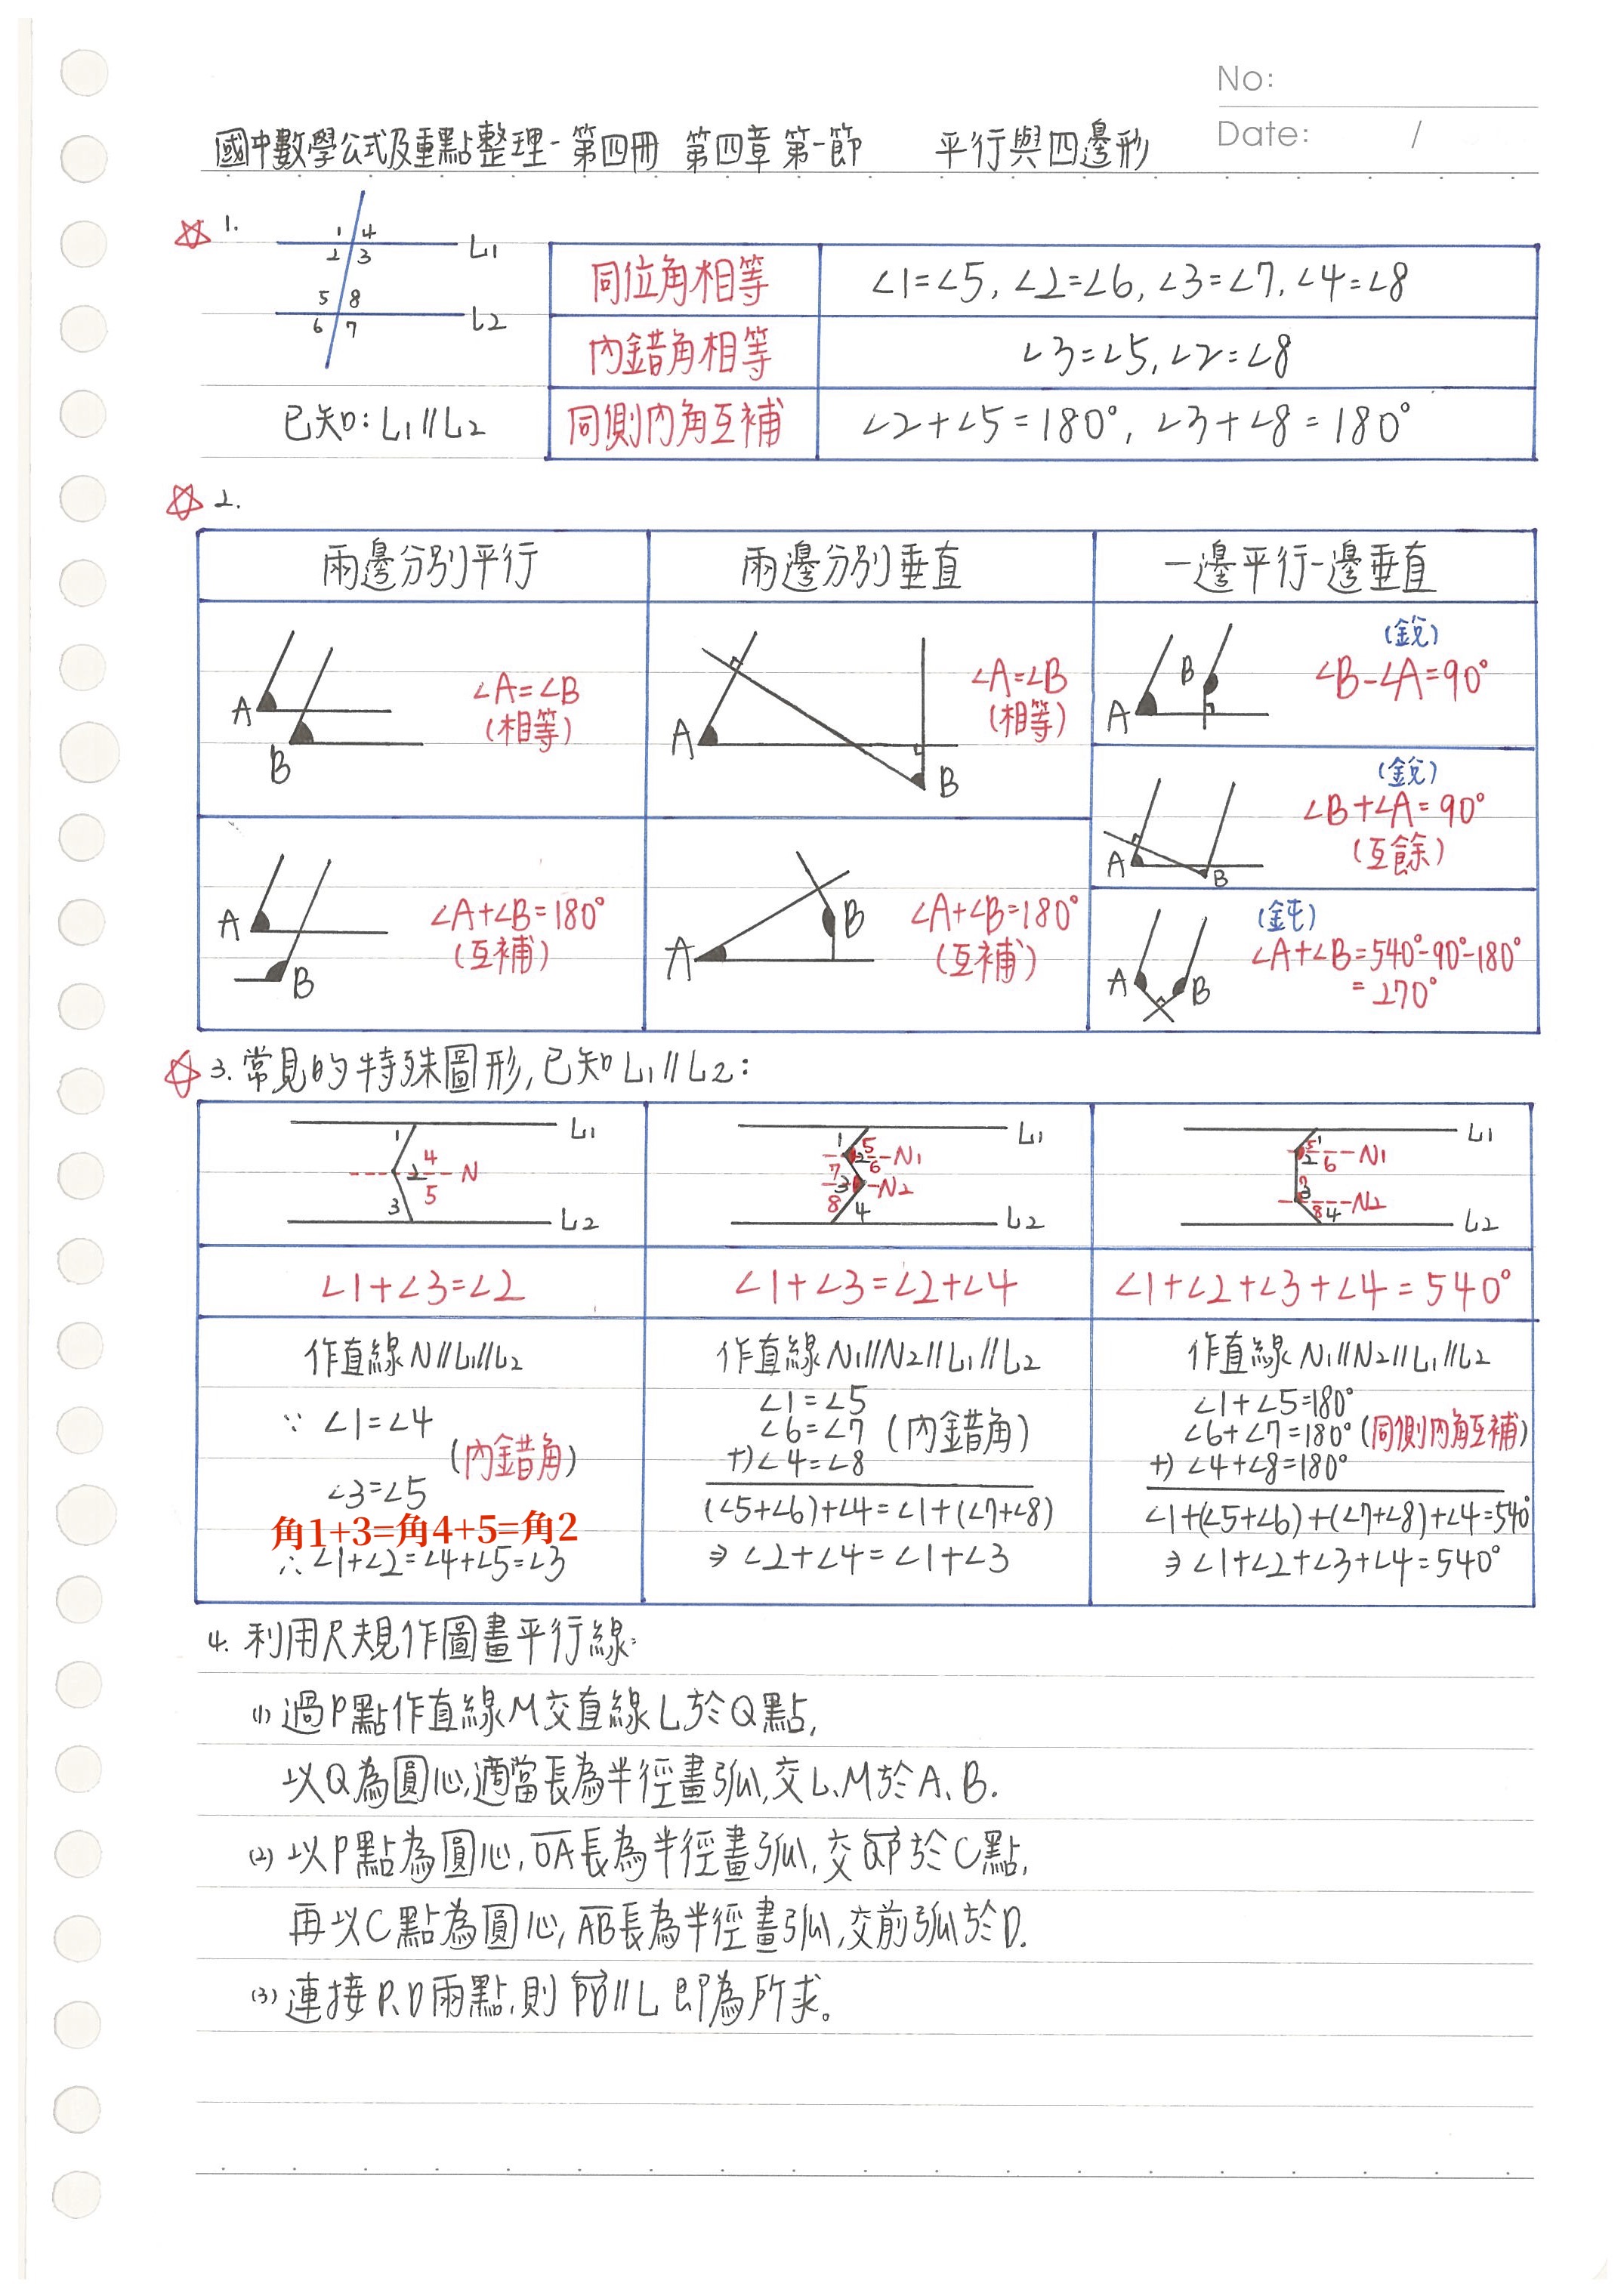 No:
Date: /
國中數學公式及重點整理-第四冊 第四章 第一節 平行與四邊形
1.
1 4
2 3
L1
5 8
6 7
L2
已知:L1∥L2
同位角相等 ∠1=∠5, ∠2=∠6, ∠3=∠7, ∠4=∠8
內錯角相等 ∠3=∠5, ∠2=∠8
同側內角互補 ∠2+∠5=180°, ∠3+∠8=180°
2.
兩邊分別平行 兩邊分別垂直 一邊平行一邊垂直
A
B
∠A=∠B
(相等)
A
B
∠A=∠B
(相等)
A
B
(銳)
∠B-∠A=90°
A
B
(銳)
∠B+∠A=90°
(互餘)
A
B
∠A+∠B=180°
(互補)
A
B
∠A+∠B=180°
(互補)
A
B
(鈍)
∠A+∠B=540°-90°-180°
=270°
3.常見的特殊圖形,已知L1∥L2:
L1
1
4
2 N
5
3
L2
L1
1 5
2 N1
7 6
3 N2
8 4
L2
L1
5 1
2 6 N1
7
3 N2
8 4
L2
∠1+∠3=∠2 ∠1+∠3=∠2+∠4 ∠1+∠2+∠3+∠4=540°
作直線N∥L1∥L2
∵ ∠1=∠4
(內錯角)
∠3=∠5
角1+3=角4+5=角2
∴∠1+∠2=∠4+∠5=∠3
作直線N1∥N2∥L1∥L2
∠1=∠5
∠6=∠7 (內錯角)
+)∠4=∠8
(∠5+∠6)+∠4=∠1+(∠7+∠8)
⇒ ∠2+∠4=∠1+∠3
作直線N1∥N2∥L1∥L2
∠1+∠5=180°
∠6+∠7=180° (同側內角互補)
+) ∠4+∠8=180°
∠1+(∠5+∠6)+(∠7+∠8)+∠4=540°
⇒∠1+∠2+∠3+∠4=540°
4. 利用尺規作圖畫平行線:
(1) 過P點作直線M交直線L於Q點,
以Q為圓心,適當長為半徑畫弧,交L、M於A、B.
(2) 以P點為圓心,OA長為半徑畫弧,交QP於C點,
再以C點為圓心,AB長為半徑畫弧,交前弧於D.
(3) 連接P、D兩點,則PD∥L 即為所求。